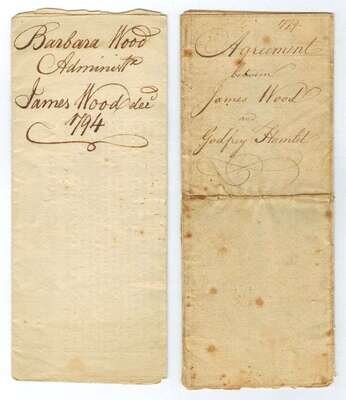 Barbara Wood
Administx
James Wood decd
1794
Agreement
between
James Wood
and
Godfrey Hamlet